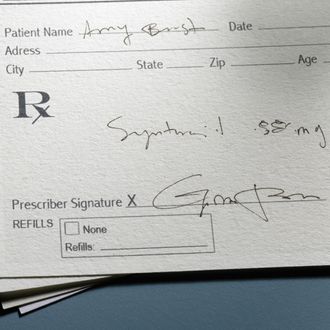 Patient Name Amy Date
Adress
City State Zip Age
Rx
.88 mg
Prescriber Signature X
REFILLS None
Refills: